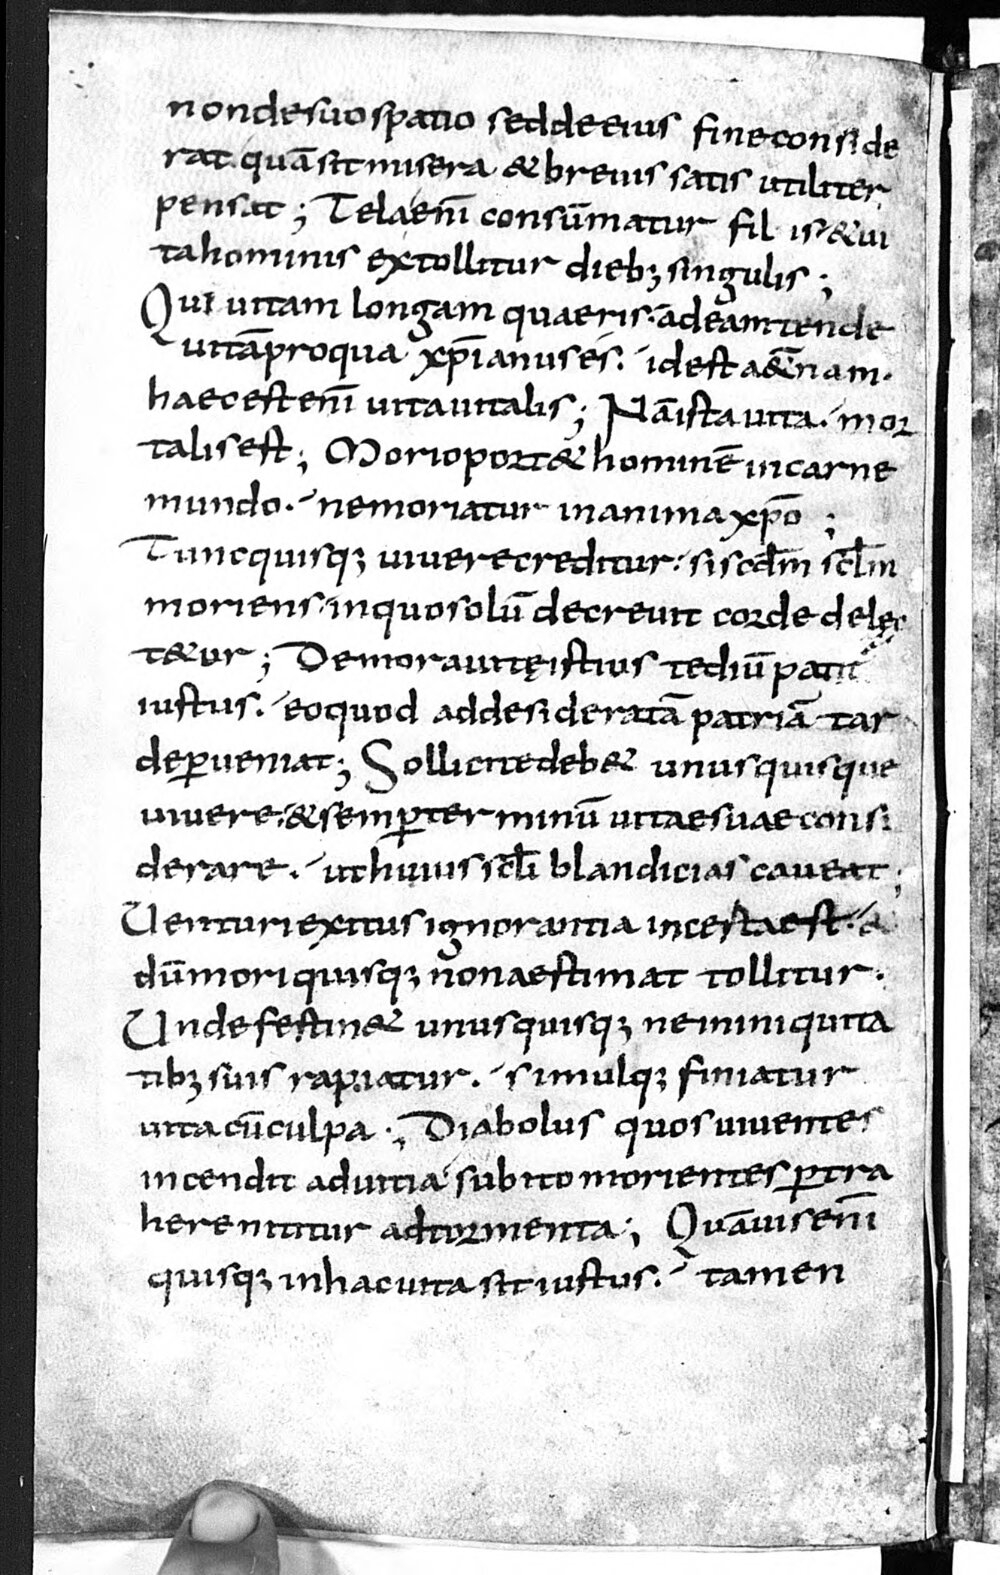 non de suo spatio sed de eius fine conside
rat. quā sit misera & breuis satis utiliter
pensat; Tela eni̅ consūmatur fil is & ui
ta hominis extollitur dieb; singulis;
Qui uitam longam quaeris. ad eam tende
uitā pro qua xp̅ianus es. id est aet̅nam.
haec est eni̅ uita uitalis; Nā ista uita. mor
talis est; Mori oport& hominē in carne
mundo. ne moriatur in anima xp̅o;
Tunc quisq; uiuere creditur. si scd̅m scl̅m
moriens. in quo solū decreuit corde delec
t&ur; De mora uitę istius tediū patit
iustus. eo quod ad desideratā patriā tar
de ꝑueniat; Sollicite deb& unusquisque
uiuere. & semꝑ terminū uitae suae consi
derare. ut huius scl̅i blandicias caueat;
Uenturi exitus ignorantia incerta est. &
dū mori quisq; non aestimat tollitur.
Unde festin& unusquisq; ne in iniquita
tib; suis rapiatur. simulq; finiatur
uita cū culpa.; Diabolus quos uiuentes
incendit ad uitia subito morientes ꝑtra
here nititur ad tormenta; Quāuis eni̅
quisq; in hac uita sit iustus. tamen